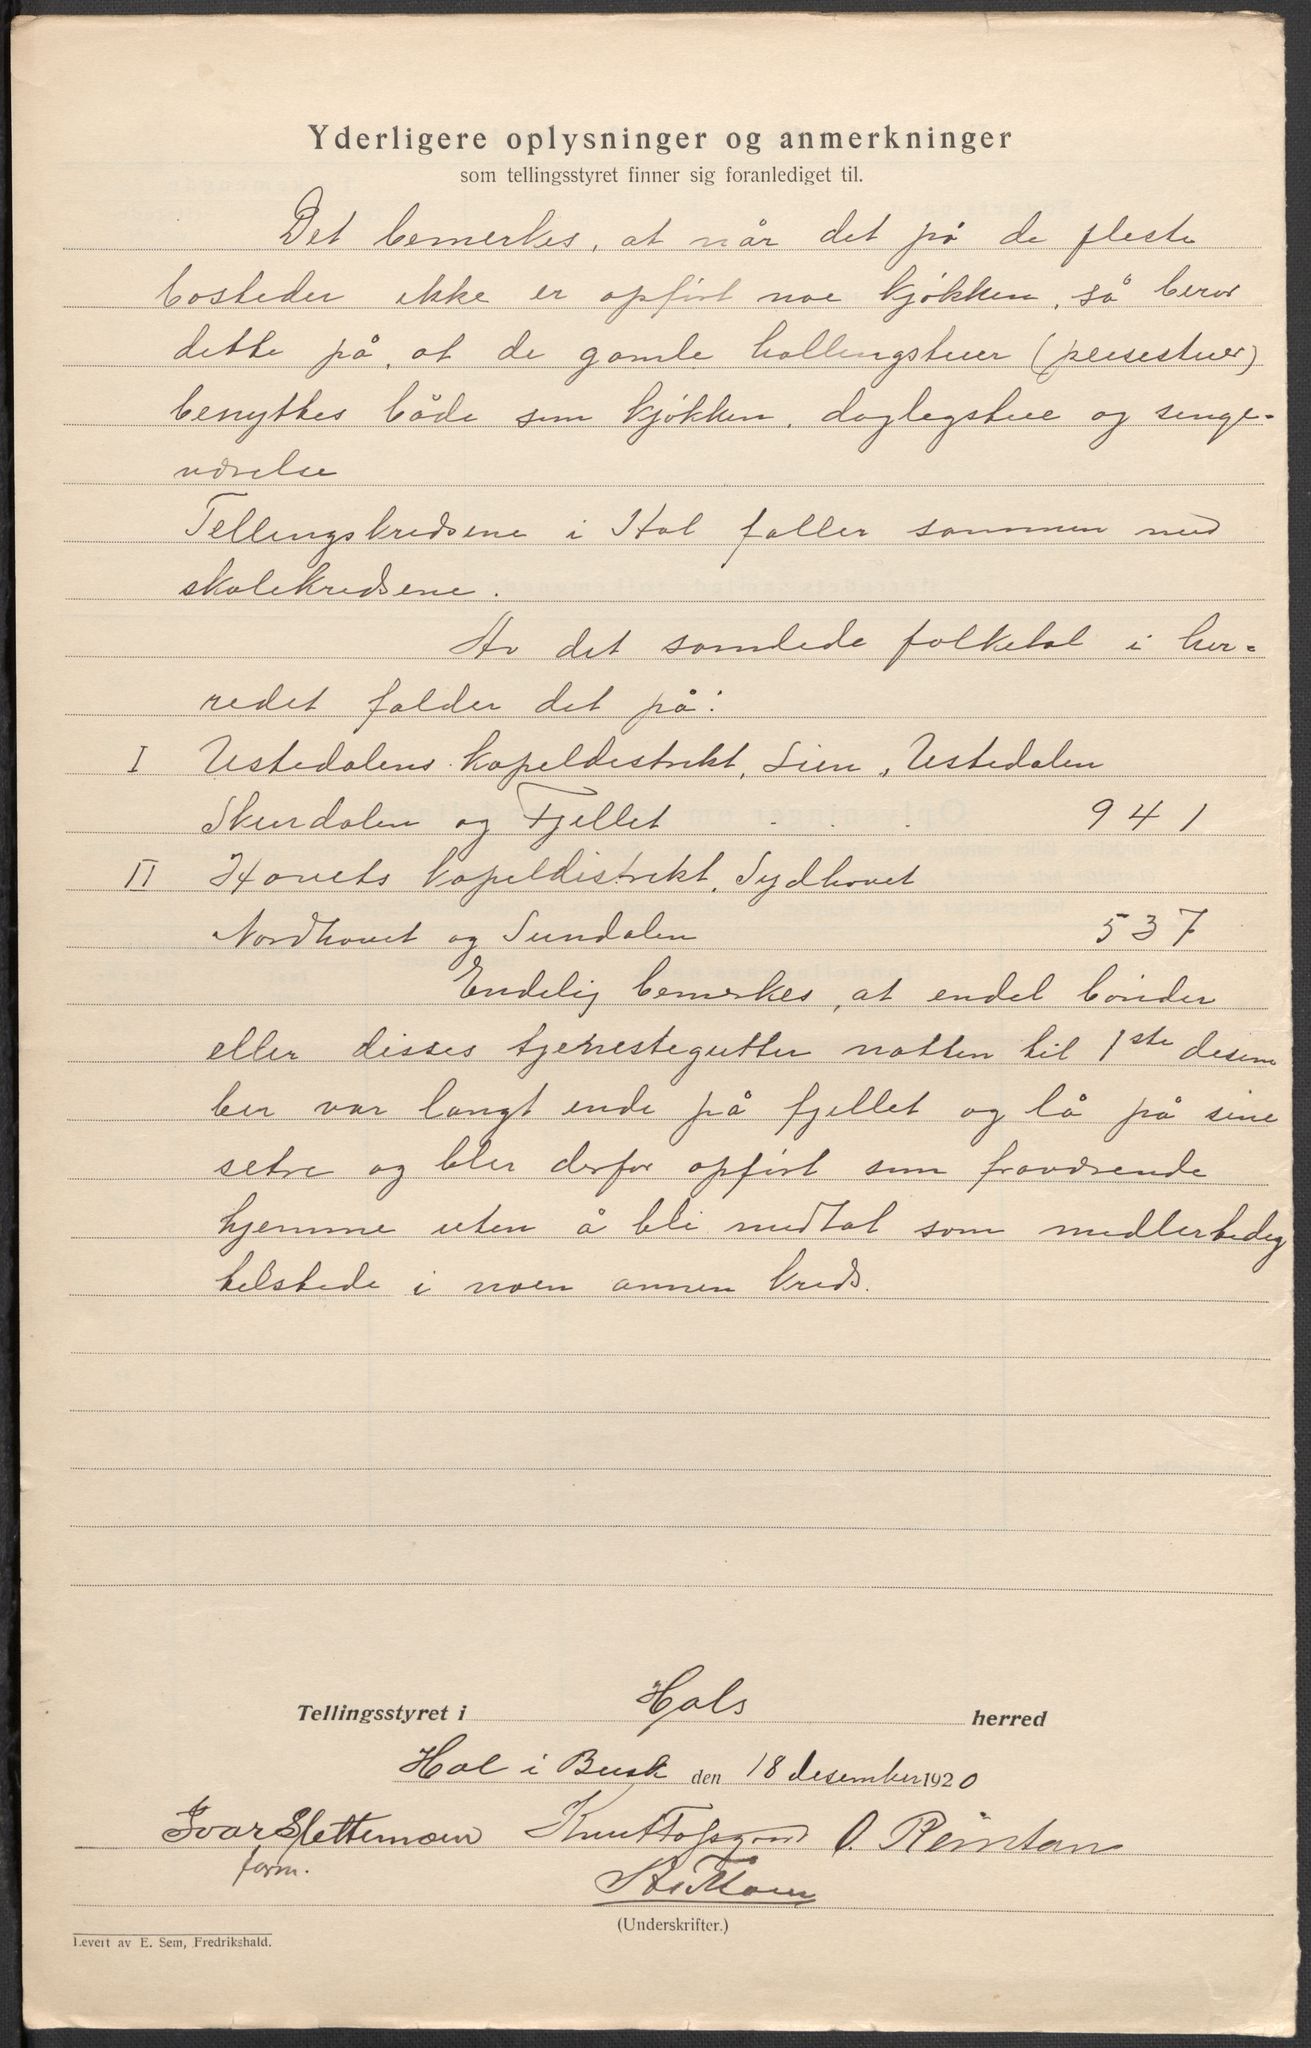 Yderligere oplysninger og anmerkninger
som tellingsstyret finner sig foranlediget til.
Det bemerkes, at når det på de fleste
bosteder ikke er opført noe kjøkken, så beror
dette på, at de gamle hallingstuer (peisestuer)
benyttes både som kjøkken, daglegstue og senge-
værelse
Tellingskredsene i Hol faller sammen med
skolekredsene.
Av det samlede folketal i her-
redet falder det på:
I Ustedalens kapeldistrikt, Lien, Ustedalen
Skurdalen og Fjellet . . . 941
II Hovets kapeldistrikt, Sydhovet
Nordhovet og Sundalen 537
Endelig bemerkes, at endel bönder
eller disses tjenestegutter natten til 1ste desem
ber var langt inde på fjellet og lå på sine
setre og blev derfor opført som fraværende
hjemme uten å bli medtat som midlertidig
tilstede i noen annen kreds.
Tellingsstyret i Hols herred
Hol i Busk den 18 desember 1920
Ivar Slettemoen Knut Tofsgård O. Reintan
form.
(Underskrifter.)
Levert av E. Sem, Fredrikshald.